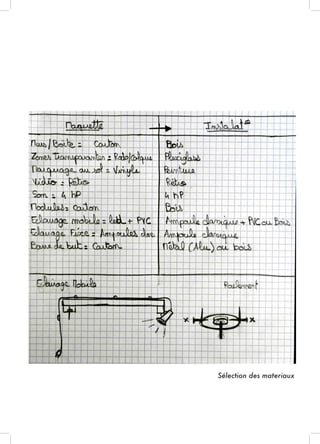 Maquette → Instalat°
Murs/Boite = Carton Bois
Zones Transparentes = Plexiglass
Marquage au sol = Vinyle Peinture
Vidéo = Rétro Rétro
Son = 4 HP 4 HP
Modules = Carton Bois
Eclairage mobile = led + PVC Ampoule classique + PVC ou Bois
Eclairage Fixe = Ampoules Ampoule classique
Carton Métal (Alu) ou bois
Eclairage Mobile Roulement
x x
Sélection des materiaux